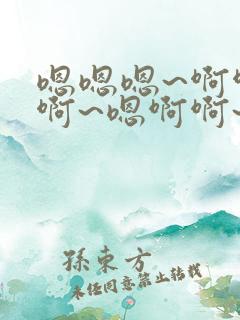 嗯嗯嗯~啊
啊~嗯啊啊~
孫東方
未經同意禁止轉載